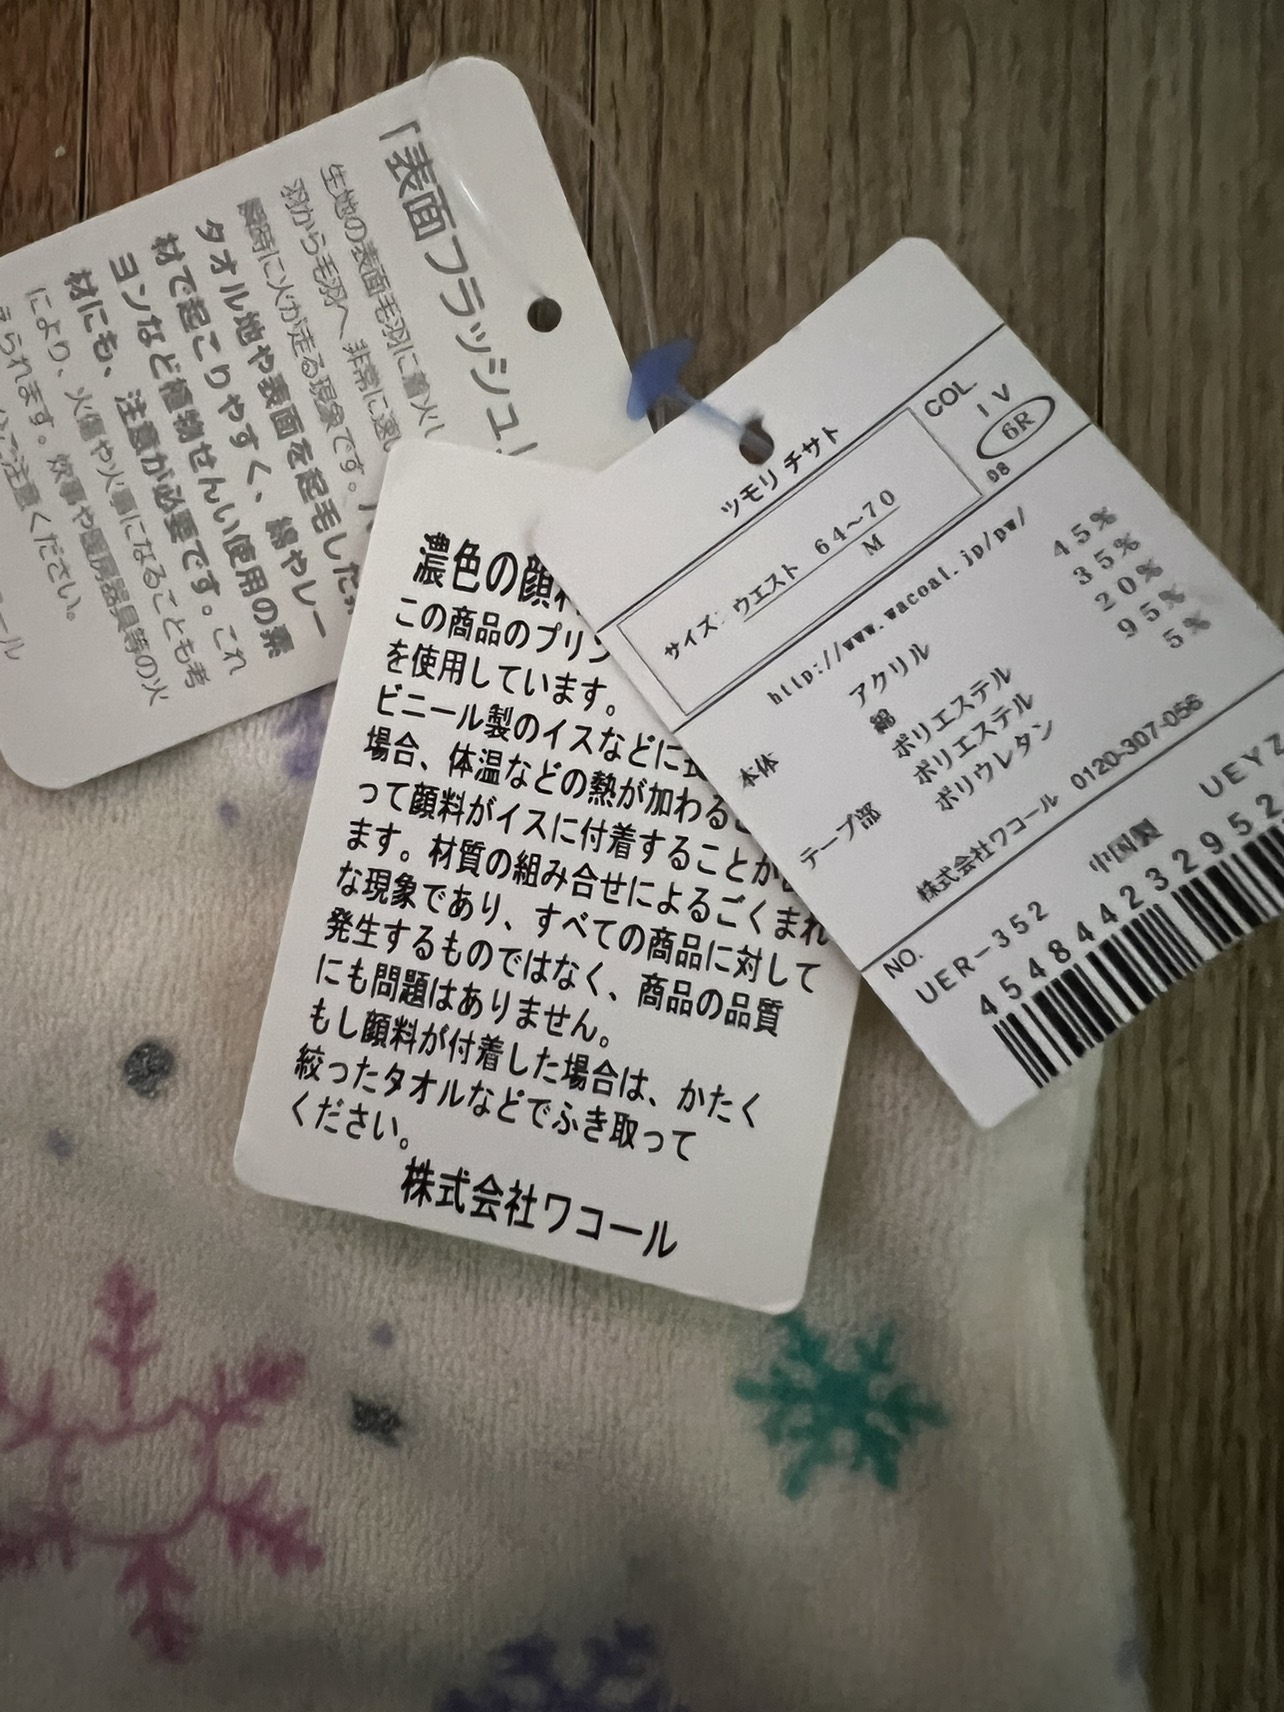 「表面フラッシュ」
生地の表面毛羽に着火し
羽から毛羽へ、非常に速い
瞬時に火が走る現象です。
タオル地や表面を起毛した
材で起こりやすく、綿やレー
ヨンなど植物せんい使用の素
材にも、注意が必要です。これ
により、火傷や火事になることも考
えられます。炊事や暖房器具等の火
にご注意ください。
濃色の顔料
この商品のプリン
を使用しています。
ビニール製のイスなどに
場合、体温などの熱が加わるこ
って顔料がイスに付着することが
ます。材質の組み合せによるごくまれ
な現象であり、すべての商品に対して
発生するものではなく、商品の品質
にも問題はありません。
もし顔料が付着した場合は、かたく
絞ったタオルなどでふき取って
ください。
株式会社ワコール
ツモリ チサト
COL.
IV
6R
D8
サイズ: ウエスト 64~70
M
http://www.wacoal.jp/pw/
本体 アクリル 45%
綿 35%
ポリエステル 20%
テープ部 ポリエステル 95%
ポリウレタン 5%
株式会社ワコール 0120-307-056
中国製
NO. UEYZ
UER-352
454844232952